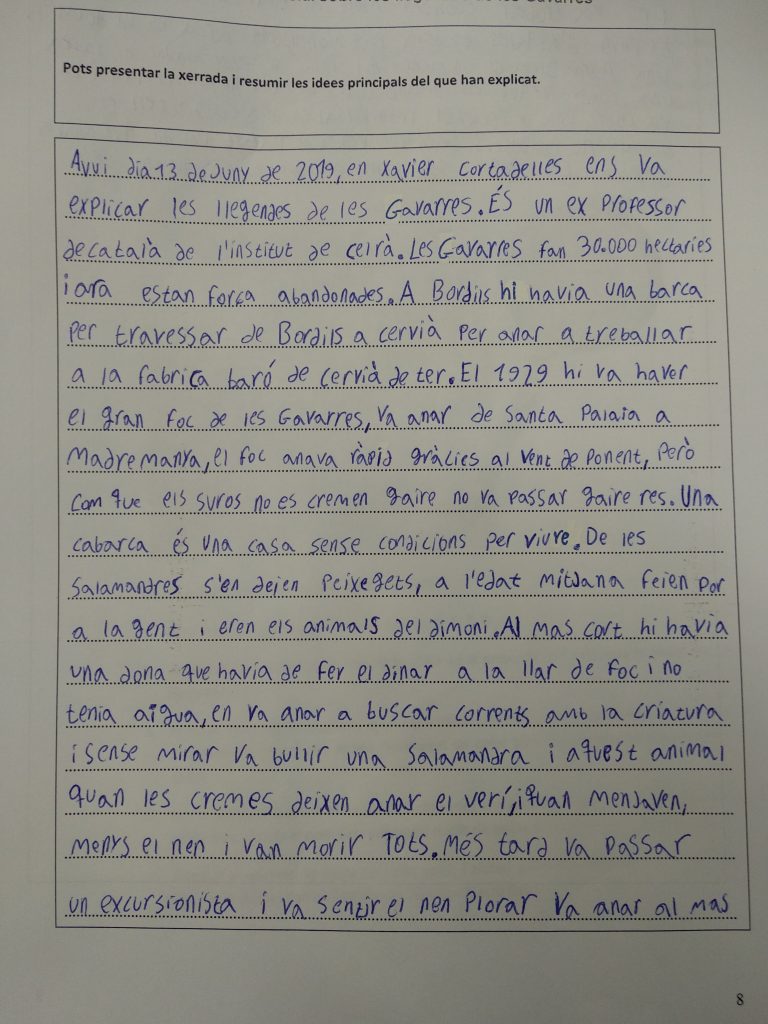 Pots presentar la xerrada i resumir les idees principals del que han explicat.
Avui dia 13 de Juny de 2019, en Xavier Cortadelles ens va
explicar les llegendes de les Gavarres. És un ex Professor
de català de l'institut de celrà. Les Gavarres fan 30.000 hectaries
i ara estan força abandonades. A Bordils hi havia una barca
per travessar de Bordils a cervià per anar a treballar
a la fabrica baró de cervià de ter. El 1929 hi va haver
el gran foc de les Gavarres, va anar de Santa Palaia a
Madremanya, el foc anava ràpid gràcies al vent de Ponent, Però
com que els suros no es cremen gaire no va passar gaire res. Una
cabarca és una casa sense condicions per viure. De les
Salamandres s'en deien Peixegets, a l'edat mitjana feien por
a la gent i eren els animals del dimoni. Al mas cort hi havia
una dona que havia de fer el dinar a la llar de foc i no
tenia aigua, en va anar a buscar corrents amb la criatura
i sense mirar va bullir una Salamandra i aquest animal
quan les cremes deixen anar el verí, i quan menjaven,
menys el nen i van morir TOTS. Més tard va passar
un excursionista i va sentir el nen Plorar va anar al mas
8